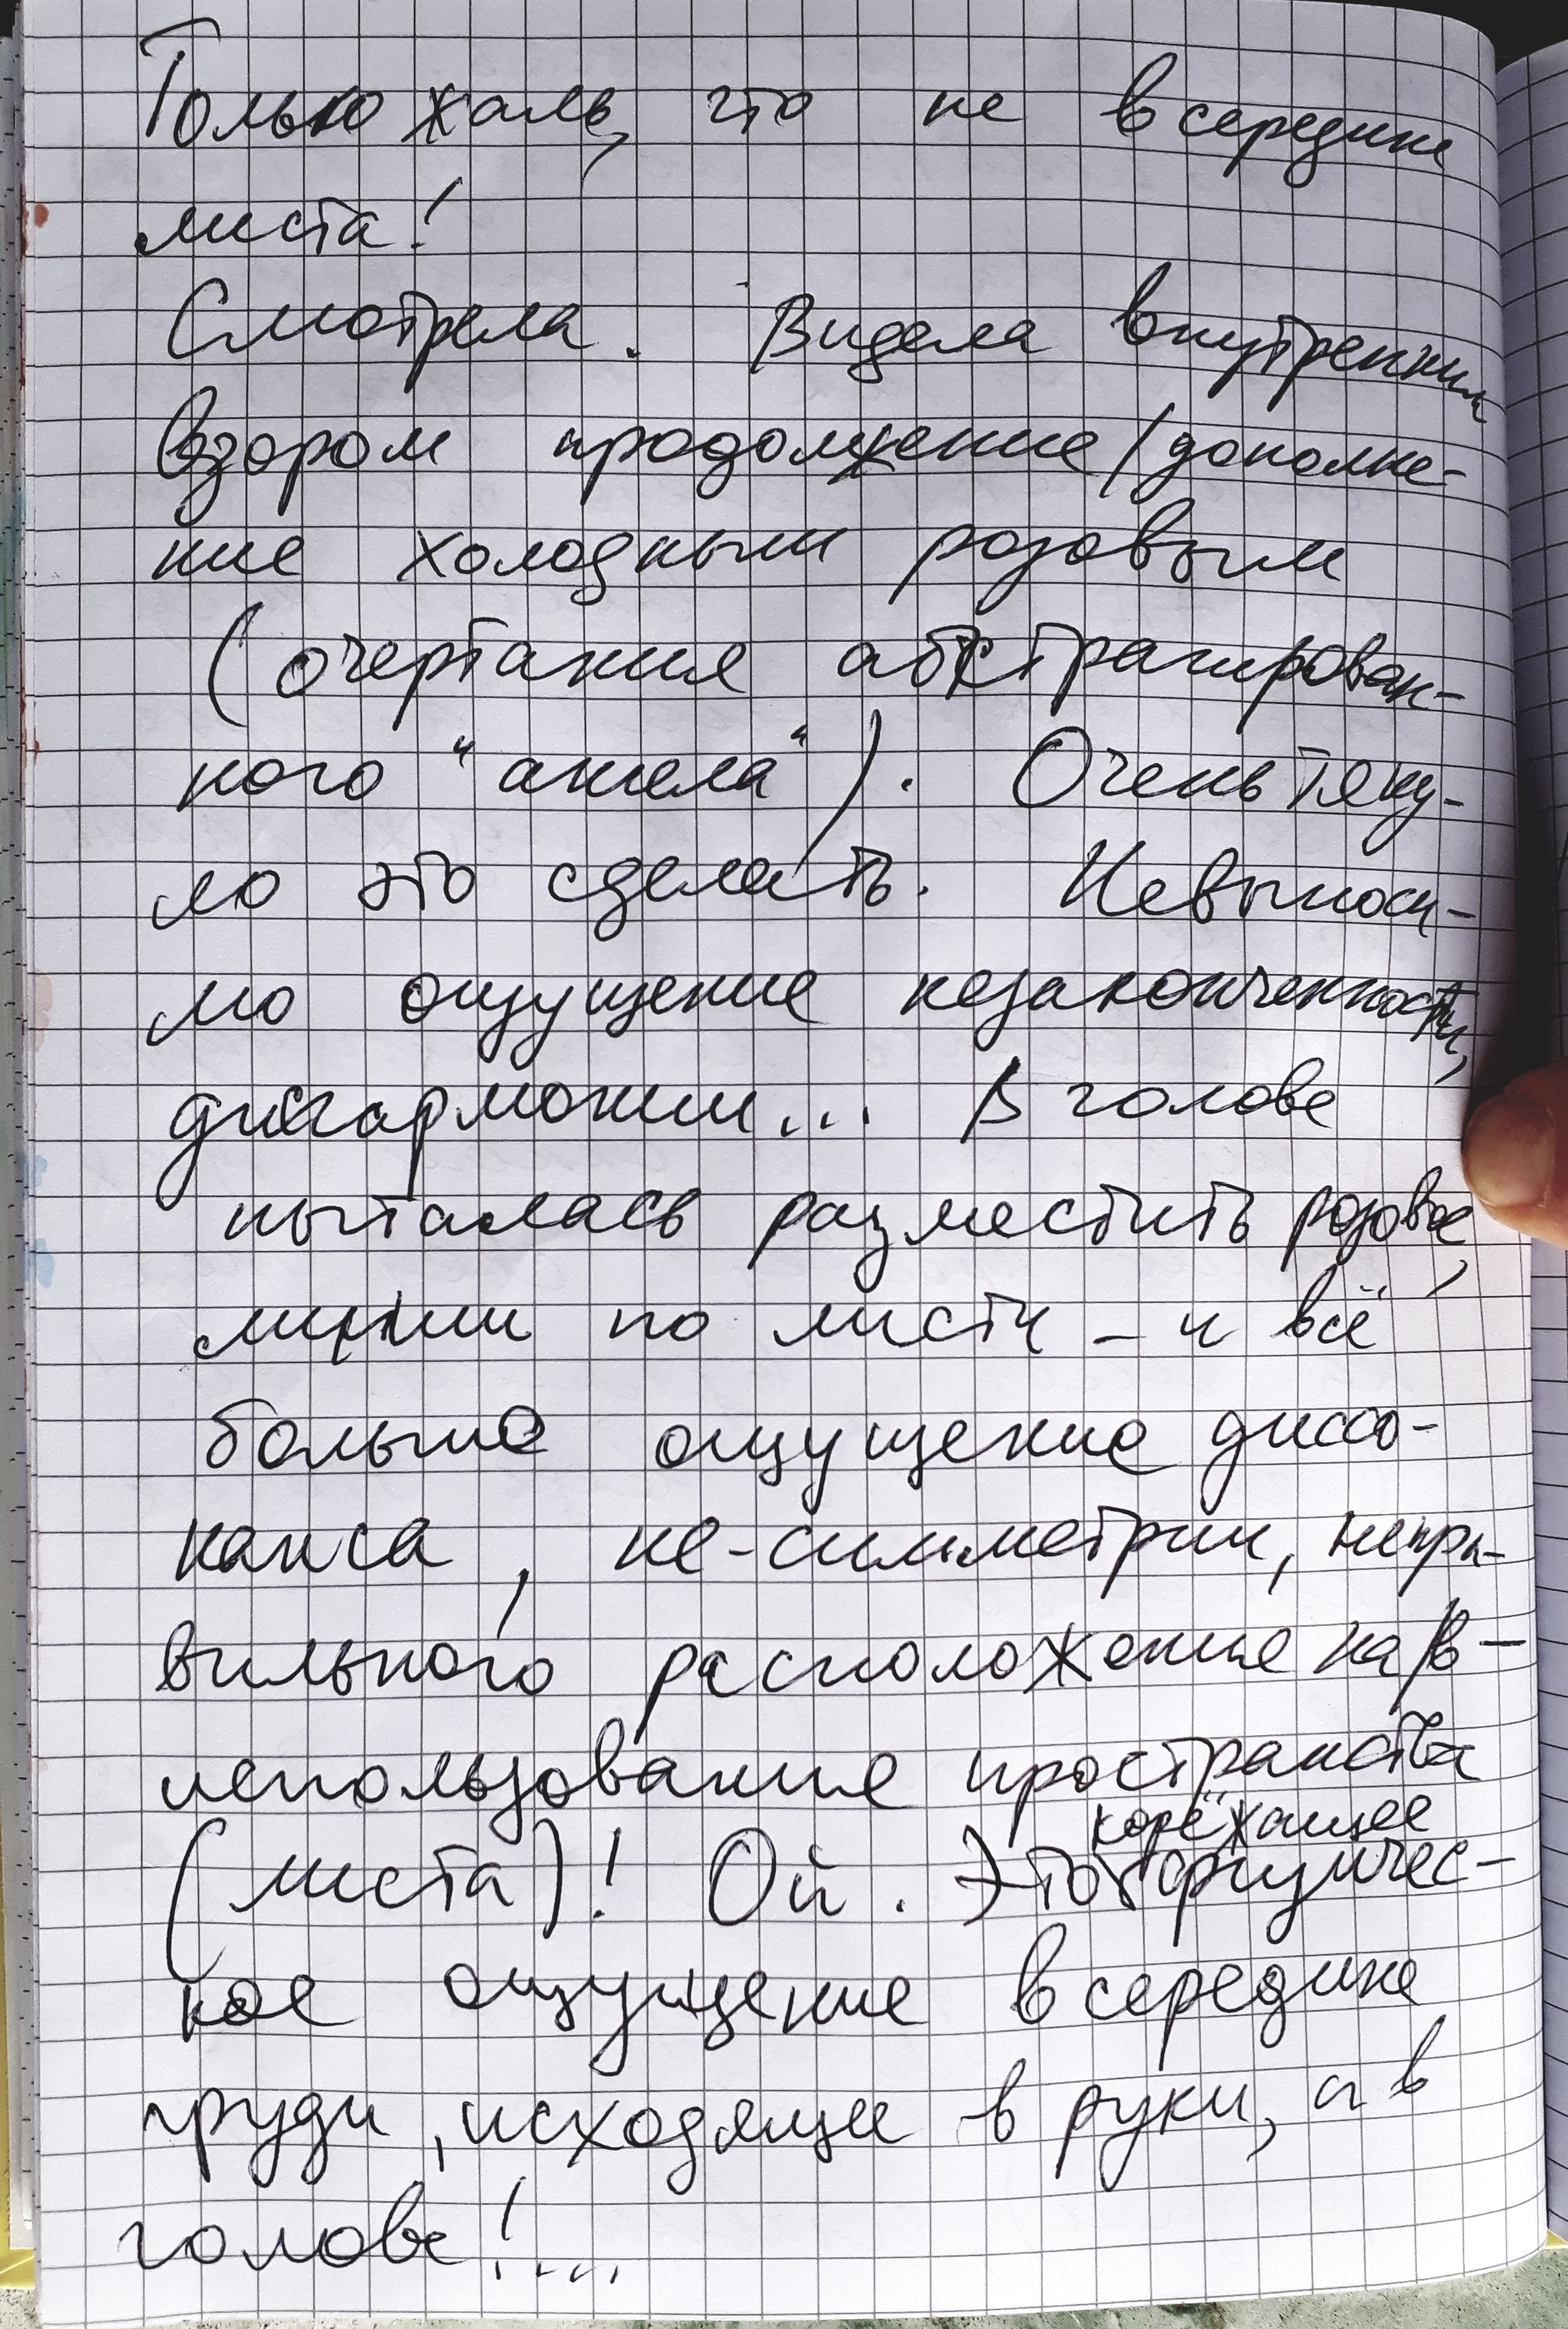 Только жаль, что не в середине
листа!
Смотрела. Видела внутренним
взором продолжение/дополне-
ние холодным розовым
(очертания абстрагирован-
ного "ангела"). Очень тяну-
ло это сделать. Невыноси-
мо ощущение незаконченности,
дисгармонии... В голове
пыталась разместить розовое,
линии по листу - и всё
больше ощущение диссо-
нанса, не-симметрии, непра-
вильного расположения на/в-
использования пространства
(листа)! Ой. Это корёжащее физичес-
кое ощущение в середине
груди, исходящее в руки, а в
голове!....